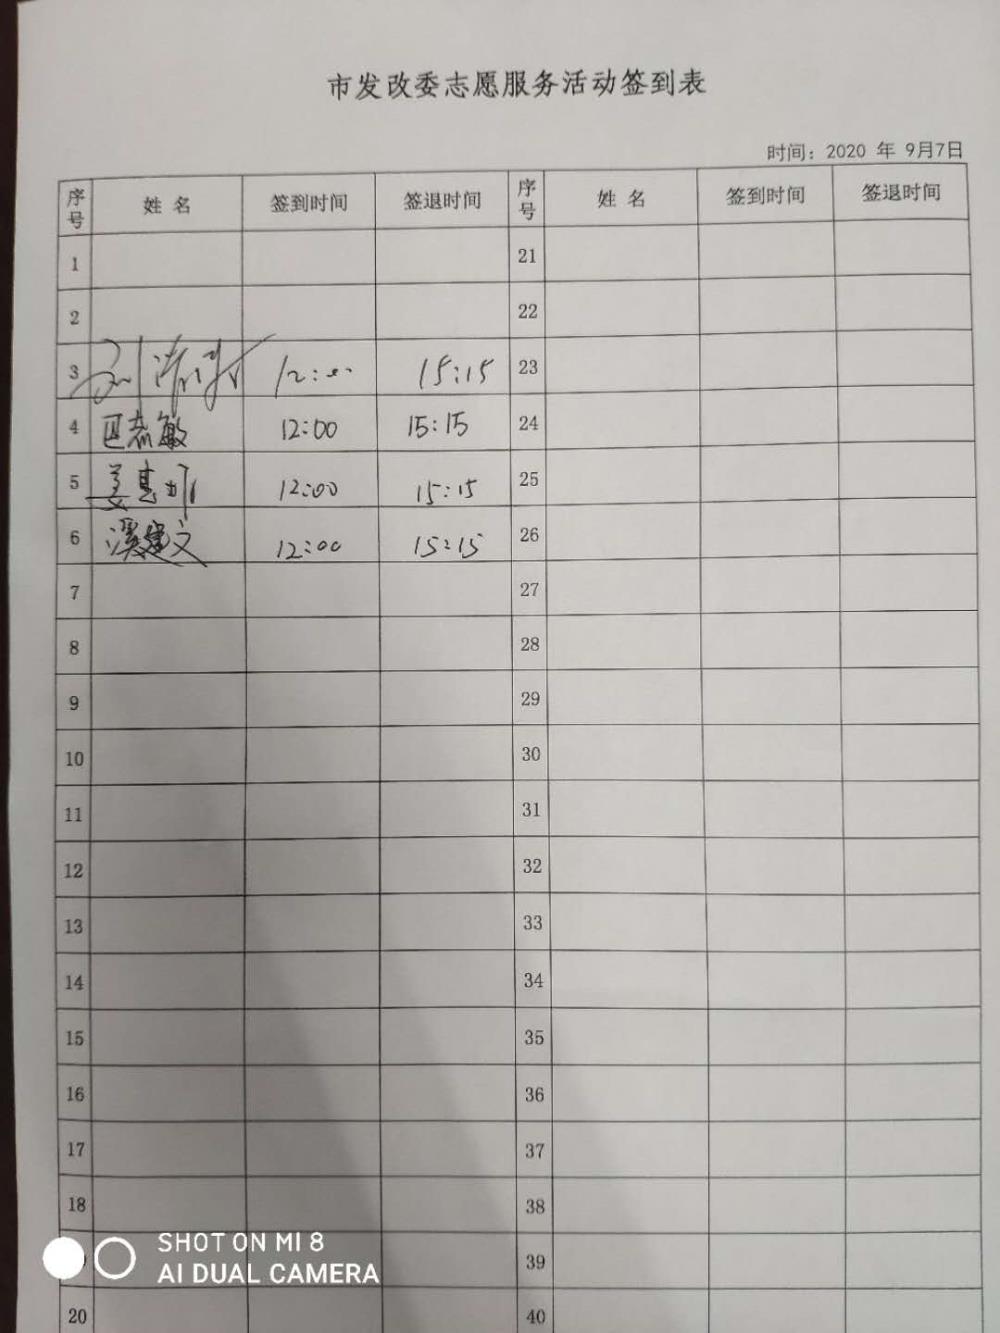 市发改委志愿服务活动签到表
时间：2020 年 9月7日
序号 姓名 签到时间 签退时间 序号 姓名 签到时间 签退时间
1 21
2 22
3 12:00 15:15 23
4 12:00 15:15 24
5 12:00 15:15 25
6 12:00 15:15 26
7 27
8 28
9 29
10 30
11 31
12 32
13 33
14 34
15 35
16 36
17 37
18 38
39
20 40
SHOT ON MI 8
AI DUAL CAMERA